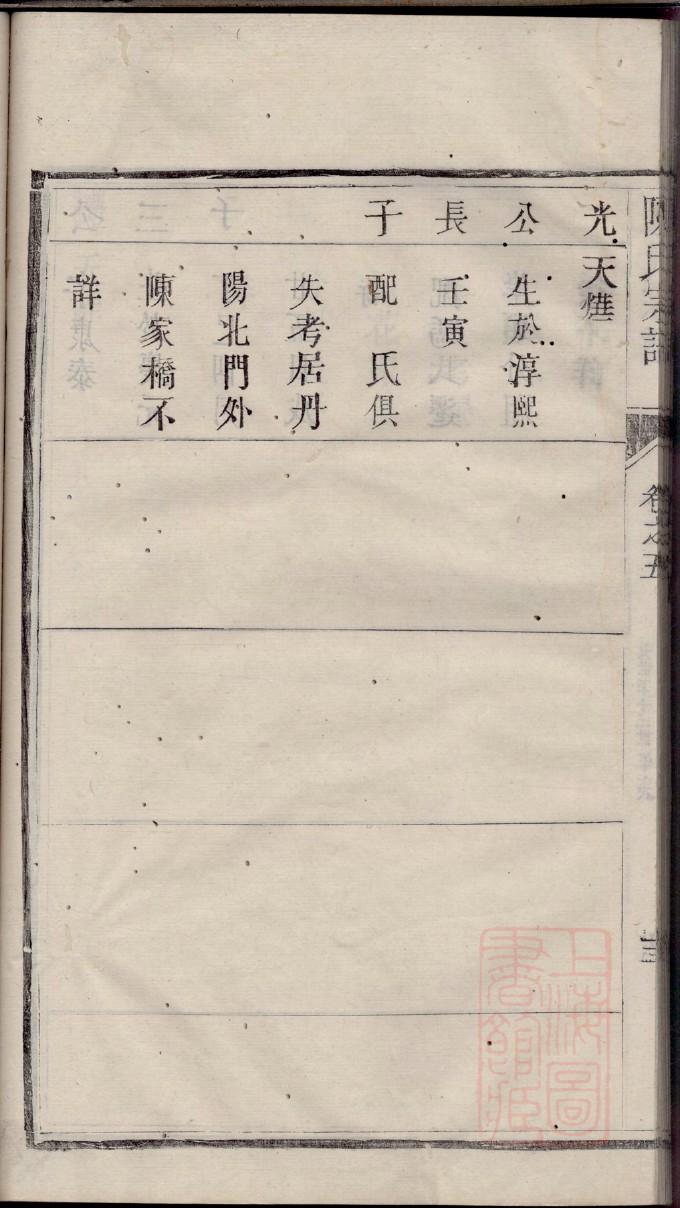 陳氏宗譜
卷之五
光公長子
天燁
生於淳熙
壬寅
配 氏俱
失考居丹
陽北門外
陳家橋不
詳
上海圖
書館藏